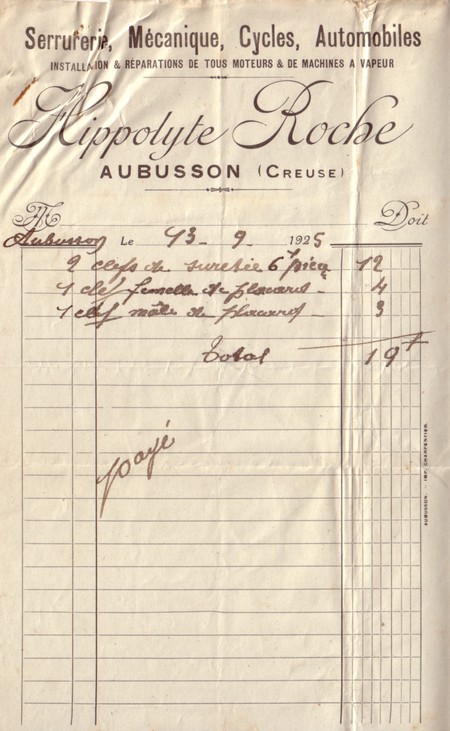 Serrurerie, Mécanique, Cycles, Automobiles
INSTALLATION & RÉPARATIONS DE TOUS MOTEURS & DE MACHINES A VAPEUR
Hippolyte Roche
AUBUSSON (CREUSE)
M Doit
Aubusson Le 13 - 9 - 1925
2 clefs de sureteé 6 pièce 12
1 clef femelle de placard - 4
1 clef mâle de placard - 3
Total 19 f
payé
AUBUSSON. - IMP. CHARPENTIER.